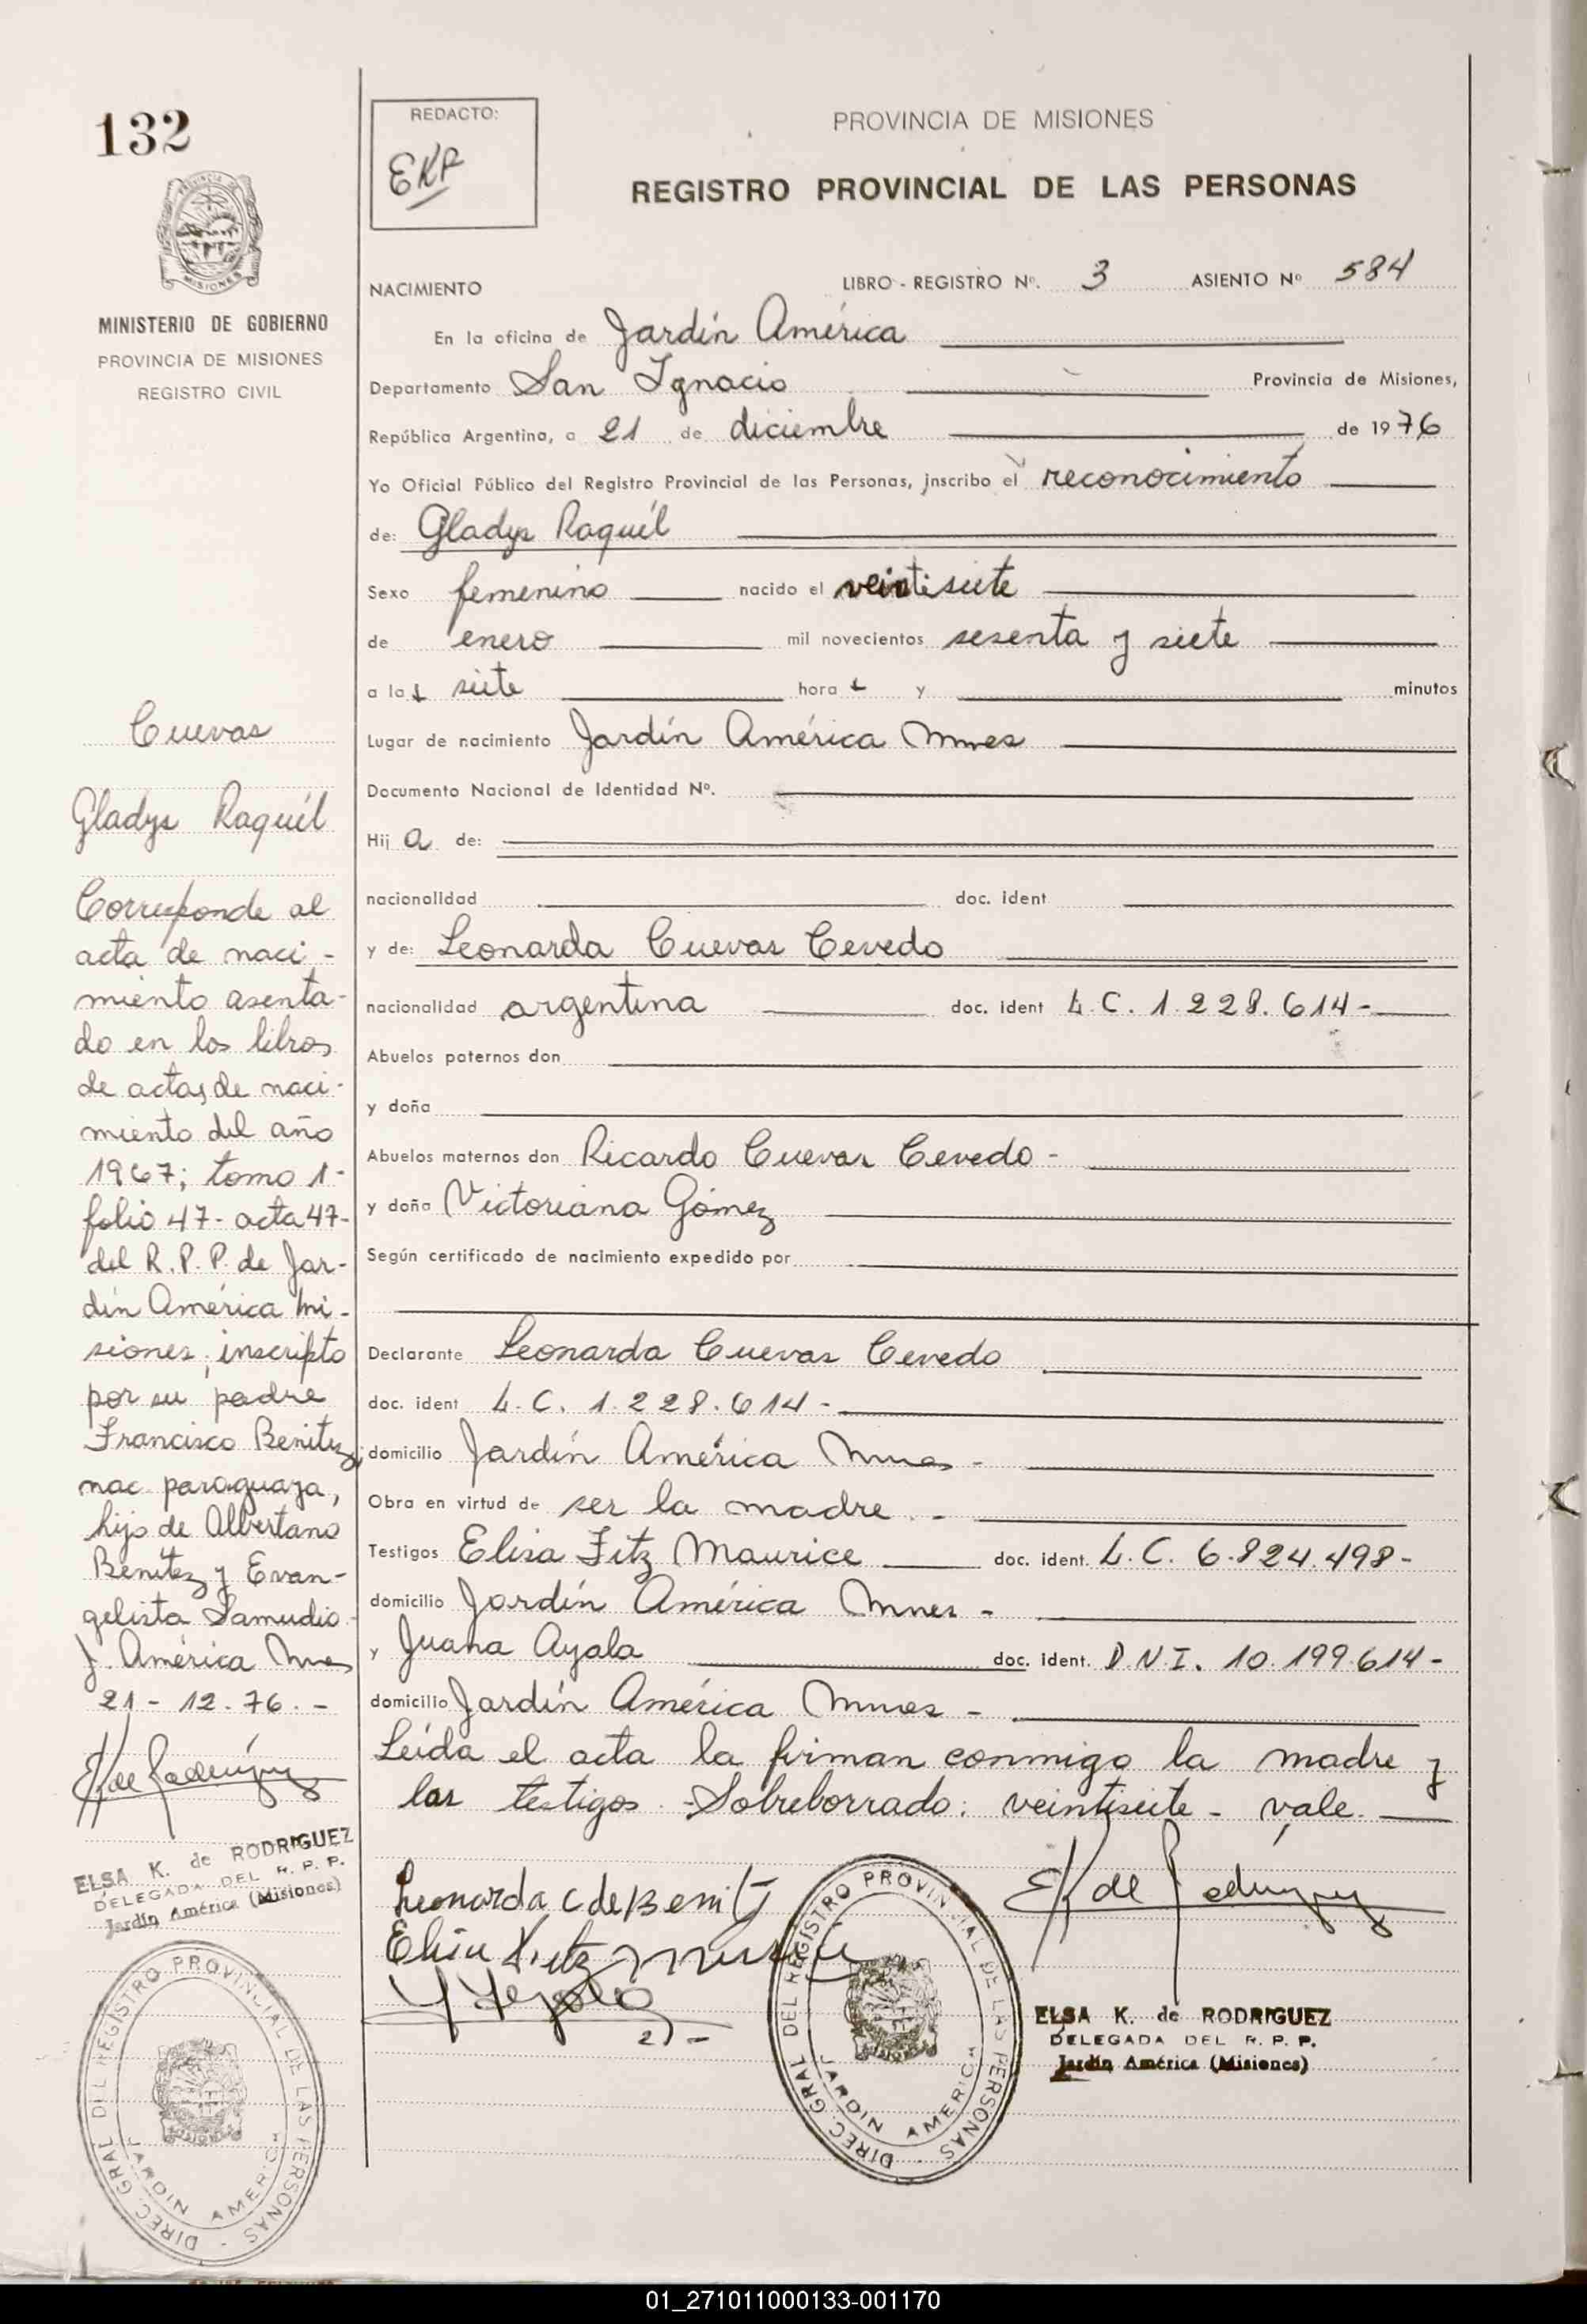 132
MINISTERIO DE GOBIERNO
PROVINCIA DE MISIONES
REGISTRO CIVIL
Cuevas
Gladys Raquél
Corresponde al
acta de naci-
miento asenta-
do en los libros
de actas de naci-
miento del año
1967; tomo 1-
folio 47- acta 47-
del R.P.P. de Jar-
dín América Mi-
siones; inscripto
por su padre
Francisco Benitez,
nac paraguaya,
hijo de Albertano
Benítez y Evan-
gelista Samudio-
J. América Mnes
21-12-76.-
ELSA K. de RODRIGUEZ
DELEGADA DEL R. P. P.
Jardín América (Misiones)
DIREC GRAL DEL REGISTRO PROVINCIAL DE LAS PERSONAS -
JARDIN AMERICA
REDACTO:
EKR
PROVINCIA DE MISIONES
REGISTRO PROVINCIAL DE LAS PERSONAS
NACIMIENTO LIBRO - REGISTRO Nº. 3 ASIENTO Nº 584
En la oficina de Jardín América
Departamento San Ignacio Provincia de Misiones,
República Argentina, a 21 de diciembre de 1976
Yo Oficial Público del Registro Provincial de las Personas, inscribo el reconocimiento
de: Gladys Raquél
Sexo femenino nacido el veintisiete
de enero mil novecientos sesenta y siete
a las siete horas y minutos
Lugar de nacimiento Jardín América Mnes
Documento Nacional de Identidad Nº.
Hij a de:
nacionalidad doc. ident
y de: Leonarda Cuevas Cevedo
nacionalidad argentina doc. ident L.C. 1.228.614-
Abuelos paternos don
y doña
Abuelos maternos don Ricardo Cuevas Cevedo-
y doña Victoriana Gómez
Según certificado de nacimiento expedido por
Declarante Leonarda Cuevas Cevedo
doc. ident L.C. 1.228.614-
domicilio Jardín América Mnes-
Obra en virtud de ser la madre.-
Testigos Elisa Fitz Maurice doc. ident. L.C. 6.824.498-
domicilio Jardín América Mnes-
y Juana Ayala doc. ident. D.N.I. 10.199.614-
domicilio Jardín América Mnes-
Leída el acta la firman conmigo la madre y
los testigos.-Sobreborrado: veintisiete- vale.
Leonarda C de Benitez
ELSA K. de RODRIGUEZ
DELEGADA DEL R. P. P.
Jardín América (Misiones)
DIREC GRAL DEL REGISTRO PROVINCIAL DE LAS PERSONAS -
JARDIN AMERICA
01_271011000133-001170